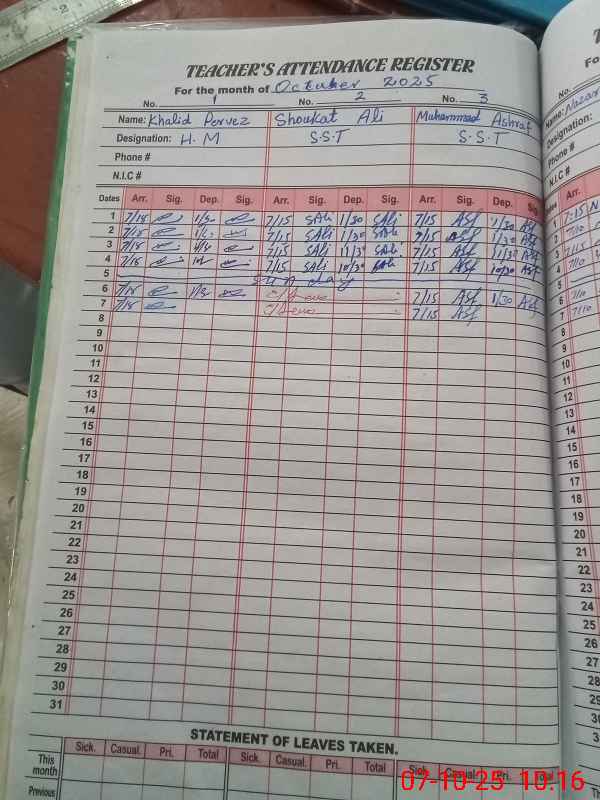 2
TEACHER'S ATTENDANCE REGISTER
For the month of October 2025
No. 1 No. 2 No. 3
Name: Khalid Pervez Shoukat Ali Muhammad Ashraf
Designation: H.M S.S.T S.S.T
Phone #
N.I.C #
Dates Arr. Sig. Dep. Sig. Arr. Sig. Dep. Sig. Arr. Sig. Dep. Sig.
1 7/15 1/30 7/15 SAli 1/30 SAli 7/15 Asf 1/30 Asf
2 7/15 7/15 SAli 1/30 SAli 7/15 Asf 1/30 Asf
3 7/15 7/15 SAli 11/30 SAli 7/15 Asf 11/30 Asf
4 7/15 7/15 SAli 10/30 SAli 7/15 Asf 10/30 Asf
5 Sunday
6 7/15 1/30 C/Leave 7/15 Asf 1/30 Asf
7 7/15 C/Leave 7/15 Asf
8
9
10
11
12
13
14
15
16
17
18
19
20
21
22
23
24
25
26
27
28
29
30
31
STATEMENT OF LEAVES TAKEN.
Sick. Casual. Pri. Total Sick. Casual. Pri. Total Sick. Casual. Pri. Total
This month
Previous
No.
Name: Nazar
Designation:
Phone #
N.I.C #
Dates Arr.
1 7:15
2 7/10
3 7/15
4 7/10
5
6 7/10
7 7/10
8
9
10
11
12
13
14
15
16
17
18
19
20
21
22
23
24
25
26
27
28
29
07-10-25 10:16